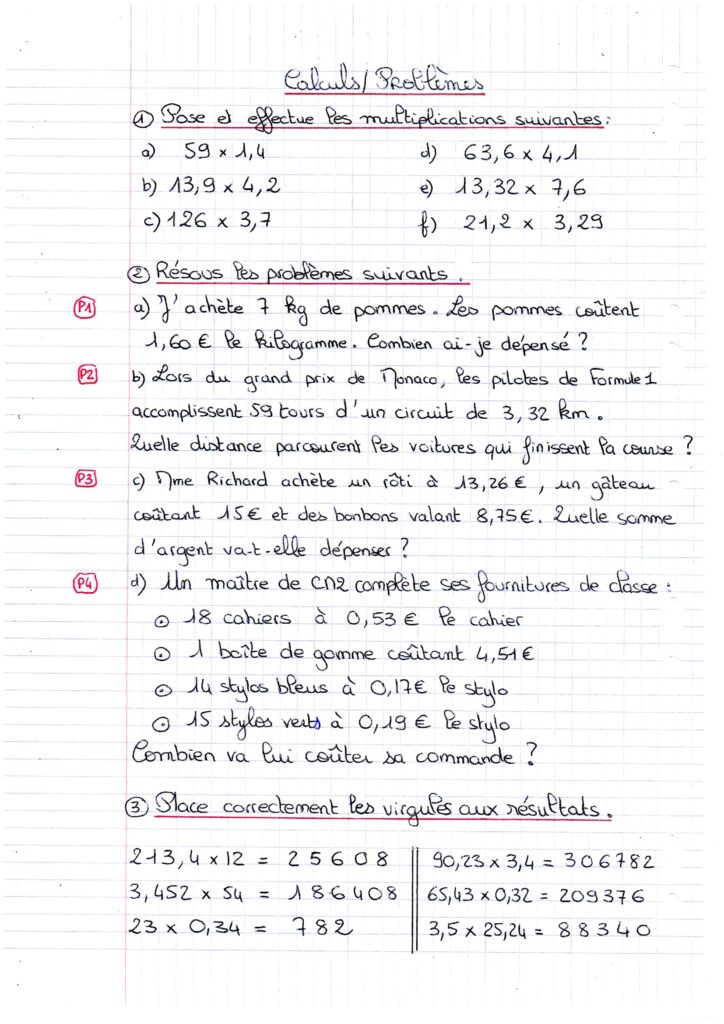 Calculs/Problèmes
① Pose et effectue les multiplications suivantes :
a) 59 × 1,4
d) 63,6 × 4,1
b) 13,9 × 4,2
e) 13,32 × 7,6
c) 126 × 3,7
f) 21,2 × 3,29
② Résous les problèmes suivants.
P1 a) J'achète 7 kg de pommes. Les pommes coûtent
1,60 € le kilogramme. Combien ai-je dépensé ?
P2 b) Lors du grand prix de Monaco, les pilotes de Formule 1
accomplissent 59 tours d'un circuit de 3,32 km.
Quelle distance parcourent les voitures qui finissent la course ?
P3 c) Mme Richard achète un rôti à 13,26 €, un gâteau
coûtant 15 € et des bonbons valant 8,75 €. Quelle somme
d'argent va-t-elle dépenser ?
P4 d) Un maître de CM2 complète ses fournitures de classe :
⊙ 18 cahiers à 0,53 € le cahier
⊙ 1 boîte de gomme coûtant 4,51 €
⊙ 14 stylos bleus à 0,17 € le stylo
⊙ 15 stylos verts à 0,19 € le stylo
Combien va lui coûter sa commande ?
③ Place correctement les virgules aux résultats.
213,4 × 12 = 25608
90,23 × 3,4 = 306782
3,452 × 54 = 186408
65,43 × 0,32 = 209376
23 × 0,34 = 782
3,5 × 25,24 = 88340